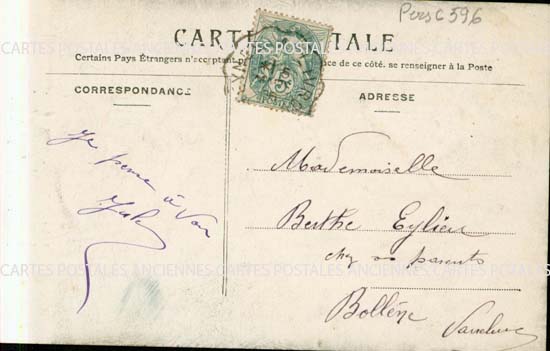 Pers C 596
CARTE POSTALE
Certains Pays Étrangers n'acceptant pas de ce côté. se renseigner à la Poste
CORRESPONDANCE
ADRESSE
Je pense à Vous
Mademoiselle
Berthe Eylieu
chez ses parents
Bollène
Vaucluse
CARTES POSTALES ANCIENNES CARTES POSTALES ANCIENNES CARTES POSTALES